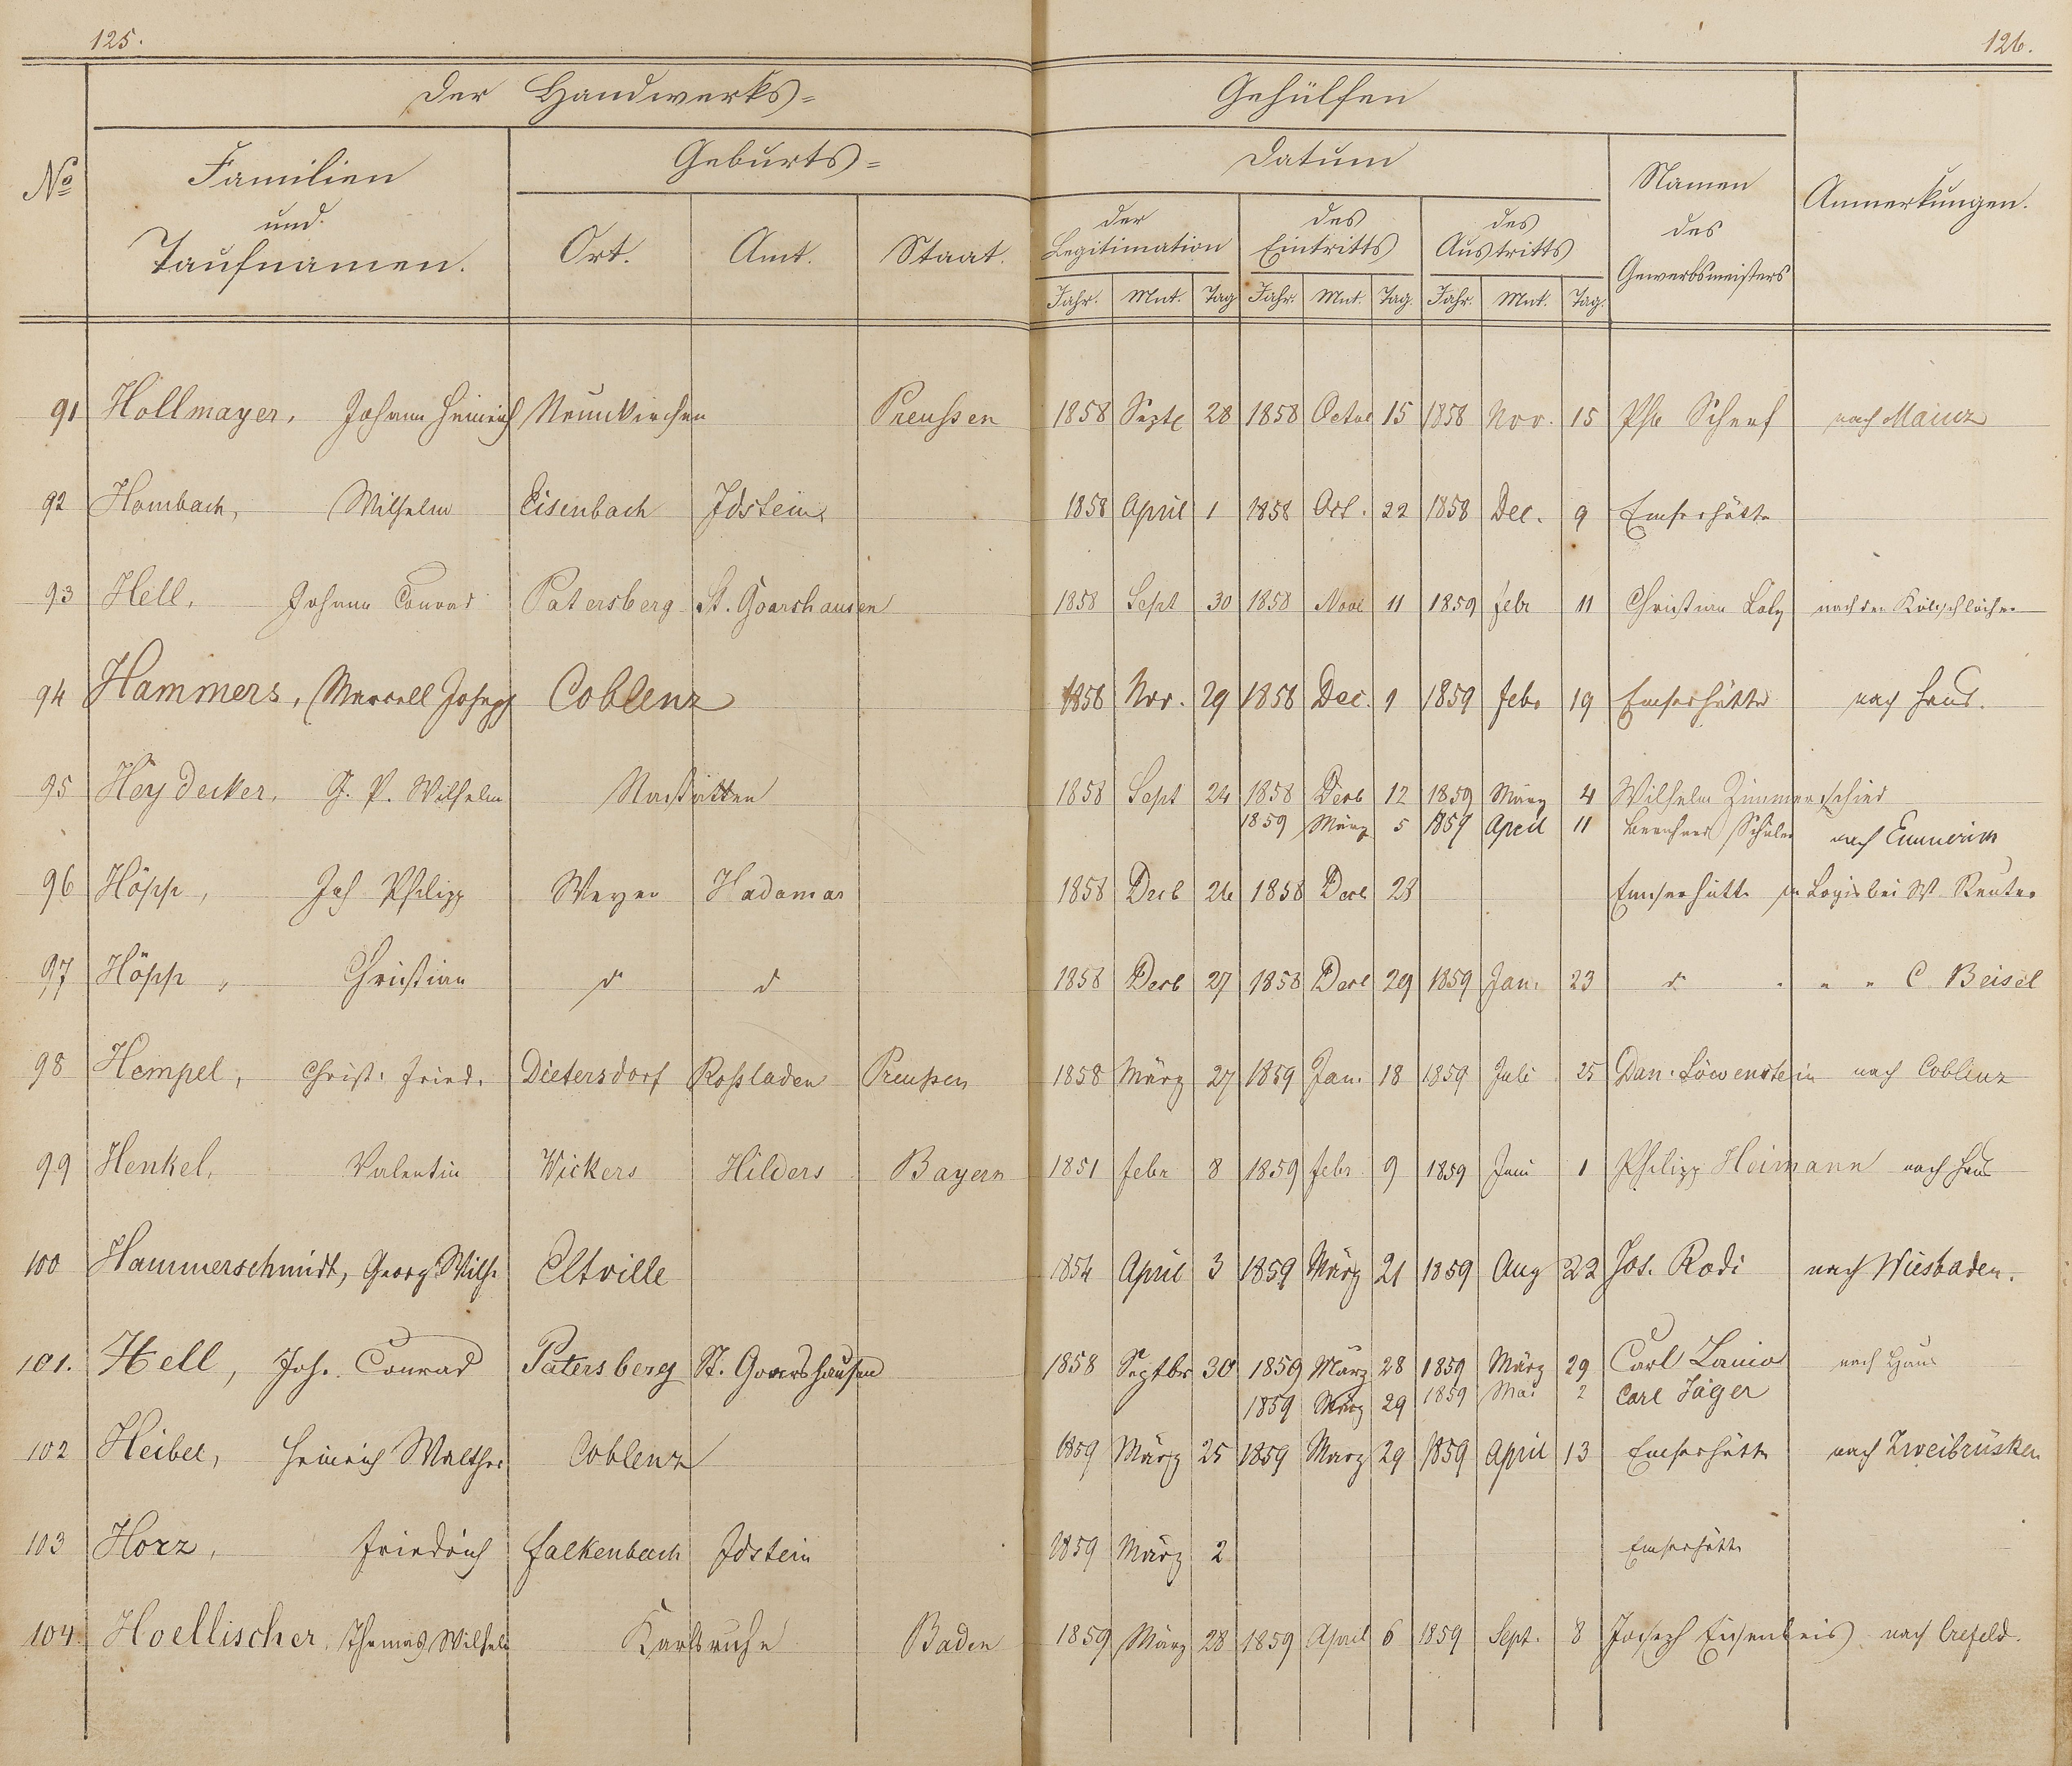 125.
126.
Der Handwerks= Gehülfen
No Familien und Taufnamen. Geburts= Datum Namen des Gewerbsmeisters Anmerkungen.
Ort. Amt. Staat. der Legitimation des Eintritts des Austritts
Jahr. Mnt. Tag Jahr. Mnt. Tag. Jahr. Mnt. Tag.
91 Hollmayer, Johann Heinrich Neunkirchen Preußen 1858 Septb 28 1858 Octob 15 1858 Nov. 15 Ph. Scherf nach Mainz
92 Hombach, Wilhelm Eisenbach Idstein 1858 April 1 1858 Oct. 22 1858 Dec. 9 Emserhütte
93 Hell, Johann Conrad Patersberg St. Goarshausen 1858 Sept 30 1858 Novb 11 1859 Febr 11 Christian nach der
94 Hammers, Marcell Joseph Coblenz 1858 Nov. 29 1858 Dec. 1 1859 Febr 19 Emserhütte nach Haus.
95 Heydecker, G. P. Wilhelm Nastätten 1858 Sept 24 1858 Decb 12 1859 März 4 Wilhelm Zimmerschied
1859 März 5 1859 April 11 Bernhard Schüler nach Emmerich
96 Höpp, Joh Philipp Weyer Hadamar 1858 Decb 26 1858 Decb 28 Emserhütte in Logis bei W Reuter
97 Höpp, Christian do do 1858 Decb 27 1858 Decb 29 1859 Jan. 23 do " " " C. Beisel
98 Hempel, Christ. Fried. Dietersdorf Roßladen Preußen 1858 März 27 1859 Jan. 18 1859 Juli 25 Dan. Löwenstein nach Coblenz
99 Henkel, Valentin Wickers Hilders Bayern 1851 Febr 8 1859 Febr 9 1859 Juni 1 Philipp Heimann nach Haus
100 Hammerschmidt, Georg Wilh. Eltville 1854 April 3 1859 März 21 1859 Aug 22 Jos. Rodi nach Wiesbaden.
101. Hell, Joh. Conrad Patersberg St. Goarshausen 1858 Septbr 30 1859 März 28 1859 März 29 Carl nach Haus
1859 März 29 1859 Mai 2 Carl Jäger
102 Heibel, Heinrich Walther Coblenz 1859 März 25 1859 März 29 1859 April 13 Emserhütte nach Zweibrüsken
103 Horz, Friedrich Falkenbach Idstein 1859 März 2 Emserhütte
104. Hoellischer, Thomas Wilhelm Karlsruhe Baden 1859 März 28 1859 April 6 1859 Sept. 8 Joseph Eisenbeis nach Crefeld.